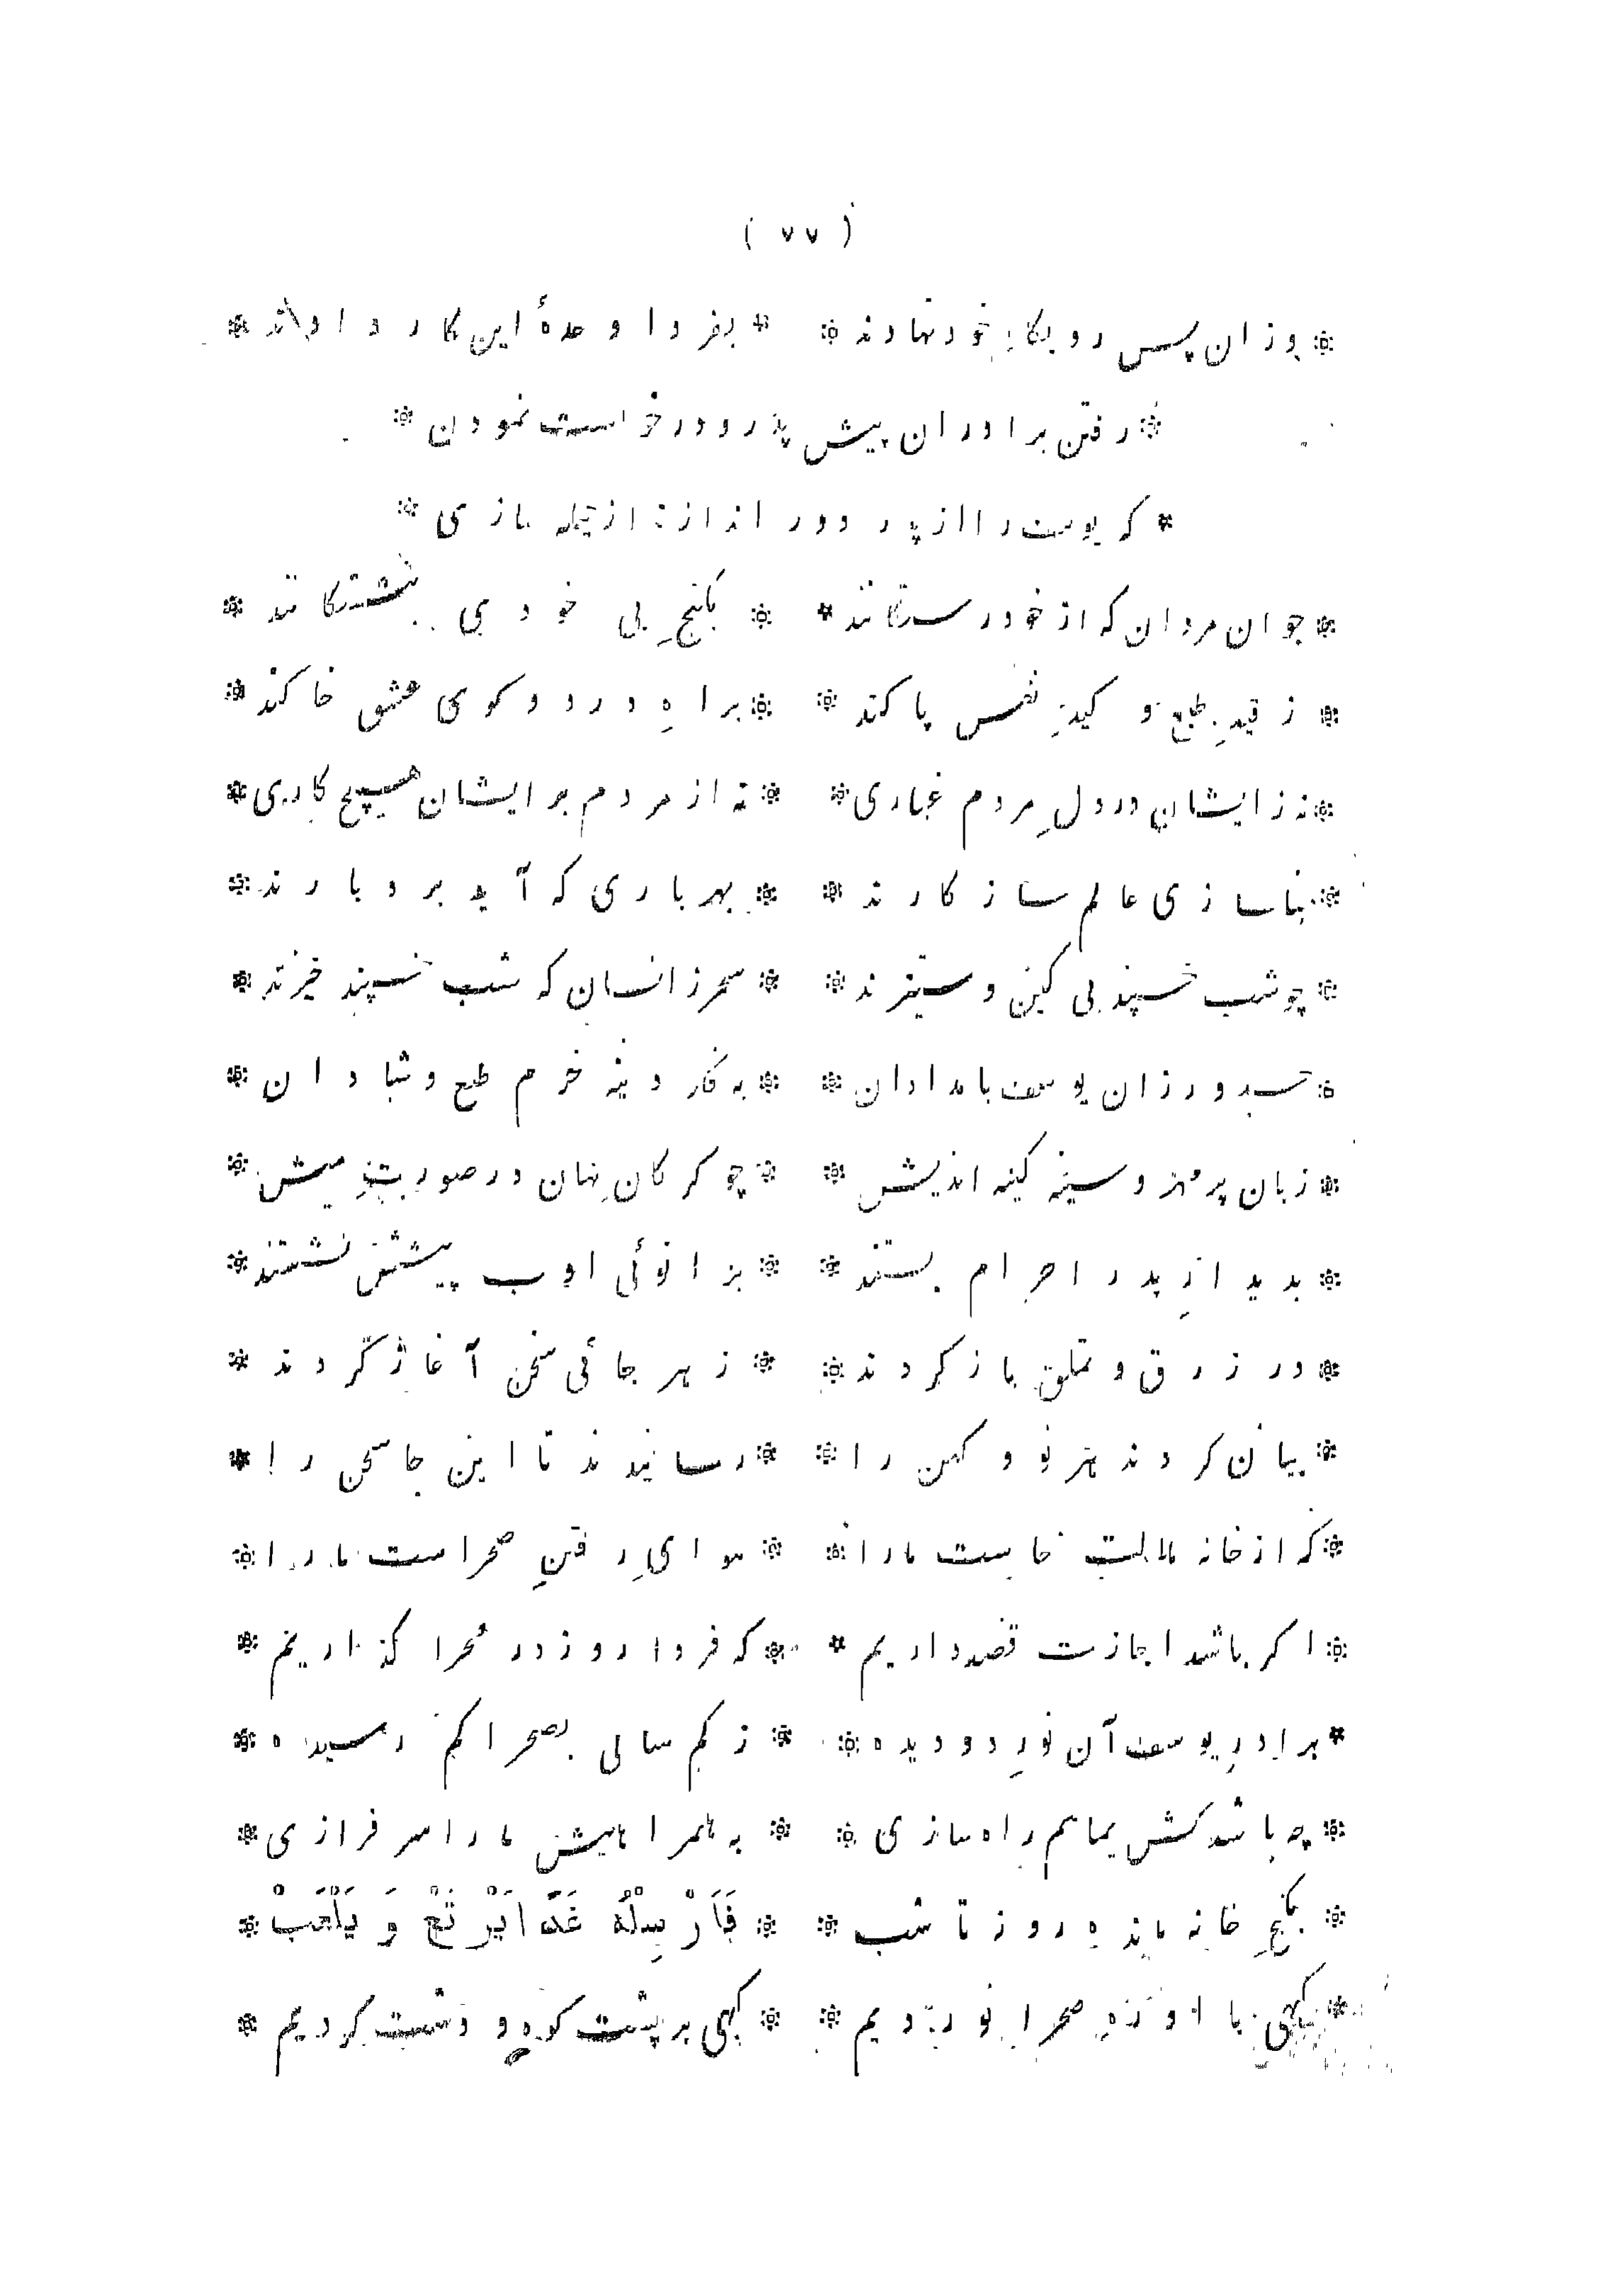 ( ۷۷ )
* وزان پس رو بکار خود نهادند * * بفردا وعدهٔ این کار دادند *
* رفتن برادران پیش پدر و درخواست نمودن *
* که یوسف را از پدر دور اندازند از حیله سازی *
* جوان مردان که از خود رستگانند * * بکنجِ بی خودی بنشستگانند *
* ز قیدِ طبع و کیدِ نفس پاکند * * براهِ درد و کوی عشق خاکند *
* نه زایشان در دلِ مردم غباری * * نه از مردم بر ایشان هیچ کاری *
* بناسازی عالم سازکارند * * بهر باری که آید بردبارند *
* چو شب خسپند بی کین و ستیزند * * سحر زانسان که شب خسپند خیزند *
* حسد ورزان یوسف بامدادان * * به فکر دینه خرم طبع و شادان *
* زبان پر مهر و سینه کینه اندیش * * چو کرکان نهان در صورتِ میش *
* بدیدارِ پدر احرام بستند * * بزانوئی ادب پیشش نشستند *
* در زرق و تملق باز کردند * * ز هر جائی سخن آغاز کردند *
* بیان کردند هر نو و کهن را * * رسانیدند تا این جا سخن را *
* که از خانه ملالت خاست مارا * * هوایِ رفتنِ صحراست مارا *
* اکر باشد اجازت قصد داریم * * که فردا روز در صحرا کذاریم *
* برادر یوسف آن نورِ دو دیده * * ز کم سالی بصحرا کم رسیده *
* چه باشد کش بما هم راه سازی * * به همراهیش مارا سر فرازی *
* بکنجِ خانه مانده روز تا شب * * فَاَرْسِلْهُ غَدًا یَرْتَعْ وَ یَلْعَبْ *
* کهی با او رهِ صحرا نوردیم * * کهی بر پشت کوه و دشت کردیم *